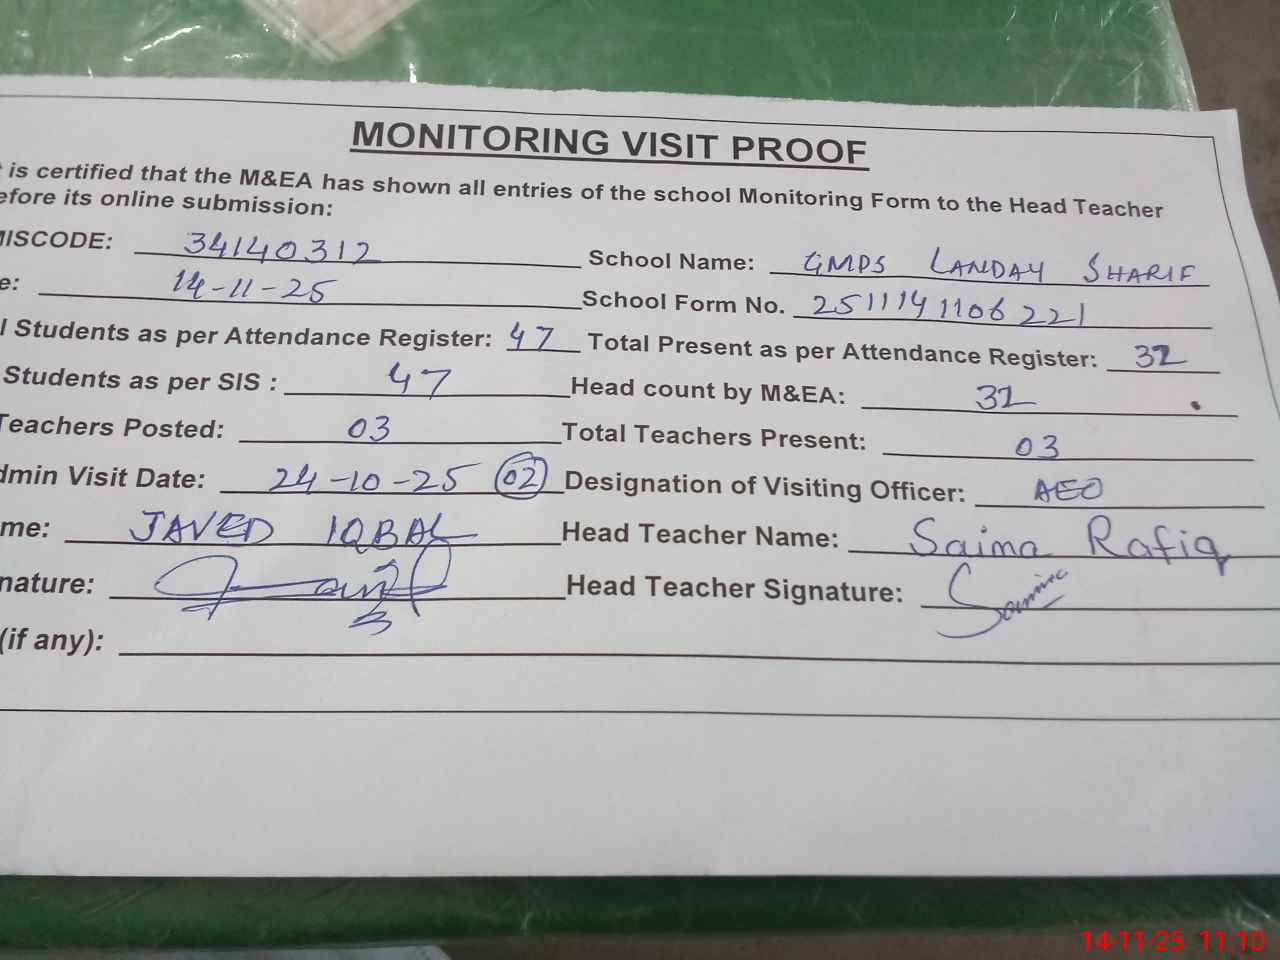 MONITORING VISIT PROOF
is certified that the M&EA has shown all entries of the school Monitoring Form to the Head Teacher
efore its online submission:
MISCODE: 34140312 School Name: GMPS LANDAY SHARIF
e: 14-11-25 School Form No. 2511141106221
l Students as per Attendance Register: 47 Total Present as per Attendance Register: 32
Students as per SIS : 47 Head count by M&EA: 32
Teachers Posted: 03 Total Teachers Present: 03
dmin Visit Date: 24-10-25 02 Designation of Visiting Officer: AEO
me: JAVED IQBAL Head Teacher Name: Saima Rafiq
nature: Head Teacher Signature: Saima
(if any):
14-11-25 11:10